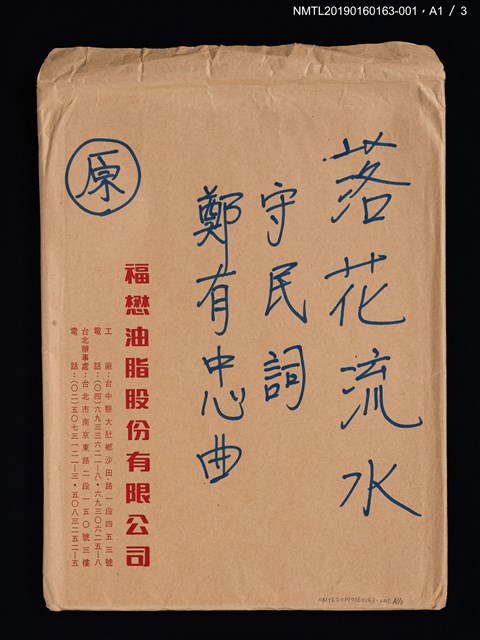 NMTL20190160163-001，A1 / 3
落花流水
守民詞
鄭有忠曲
原
福懋油脂股份有限公司
工廠：台中縣大肚鄉沙田路一段四五三號
電話：(○四)六九三三六二一～八・六九三○六二五～八
台北辦事處：台北市南京東路二段一五○號三樓
電話：(○二)五○七三一二一～三・五○八三二五二～五
NMTL20190160163-001, A1/3